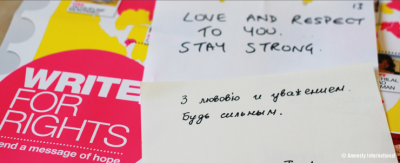 13
LOVE AND RESPECT
TO YOU.
STAY STRONG.
WRITE
FOR
RIGHTS
end a message of hope
З любовію и уважением.
Будь сильным.
© Amnesty International